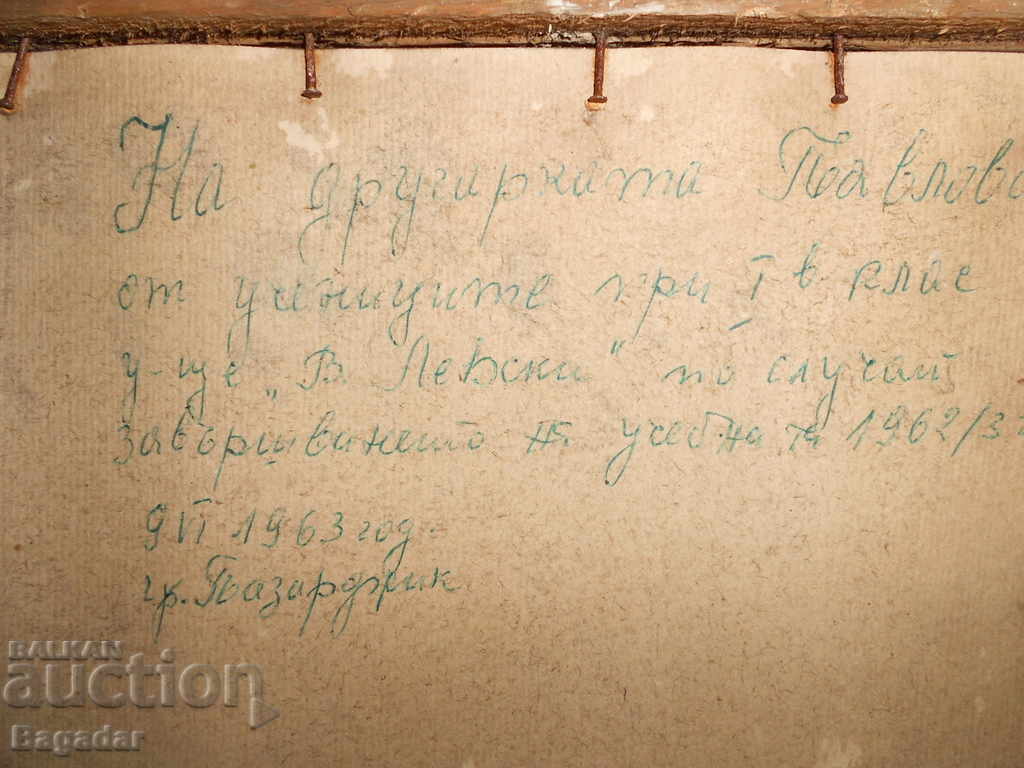 На другарката Павлова
от учениците при I в клас
у-ще „В. Левски" по случай
завършването на учебната 1962/3
9 VI 1963 год.
гр. Пазарджик
BALKAN
auction
Bagadar